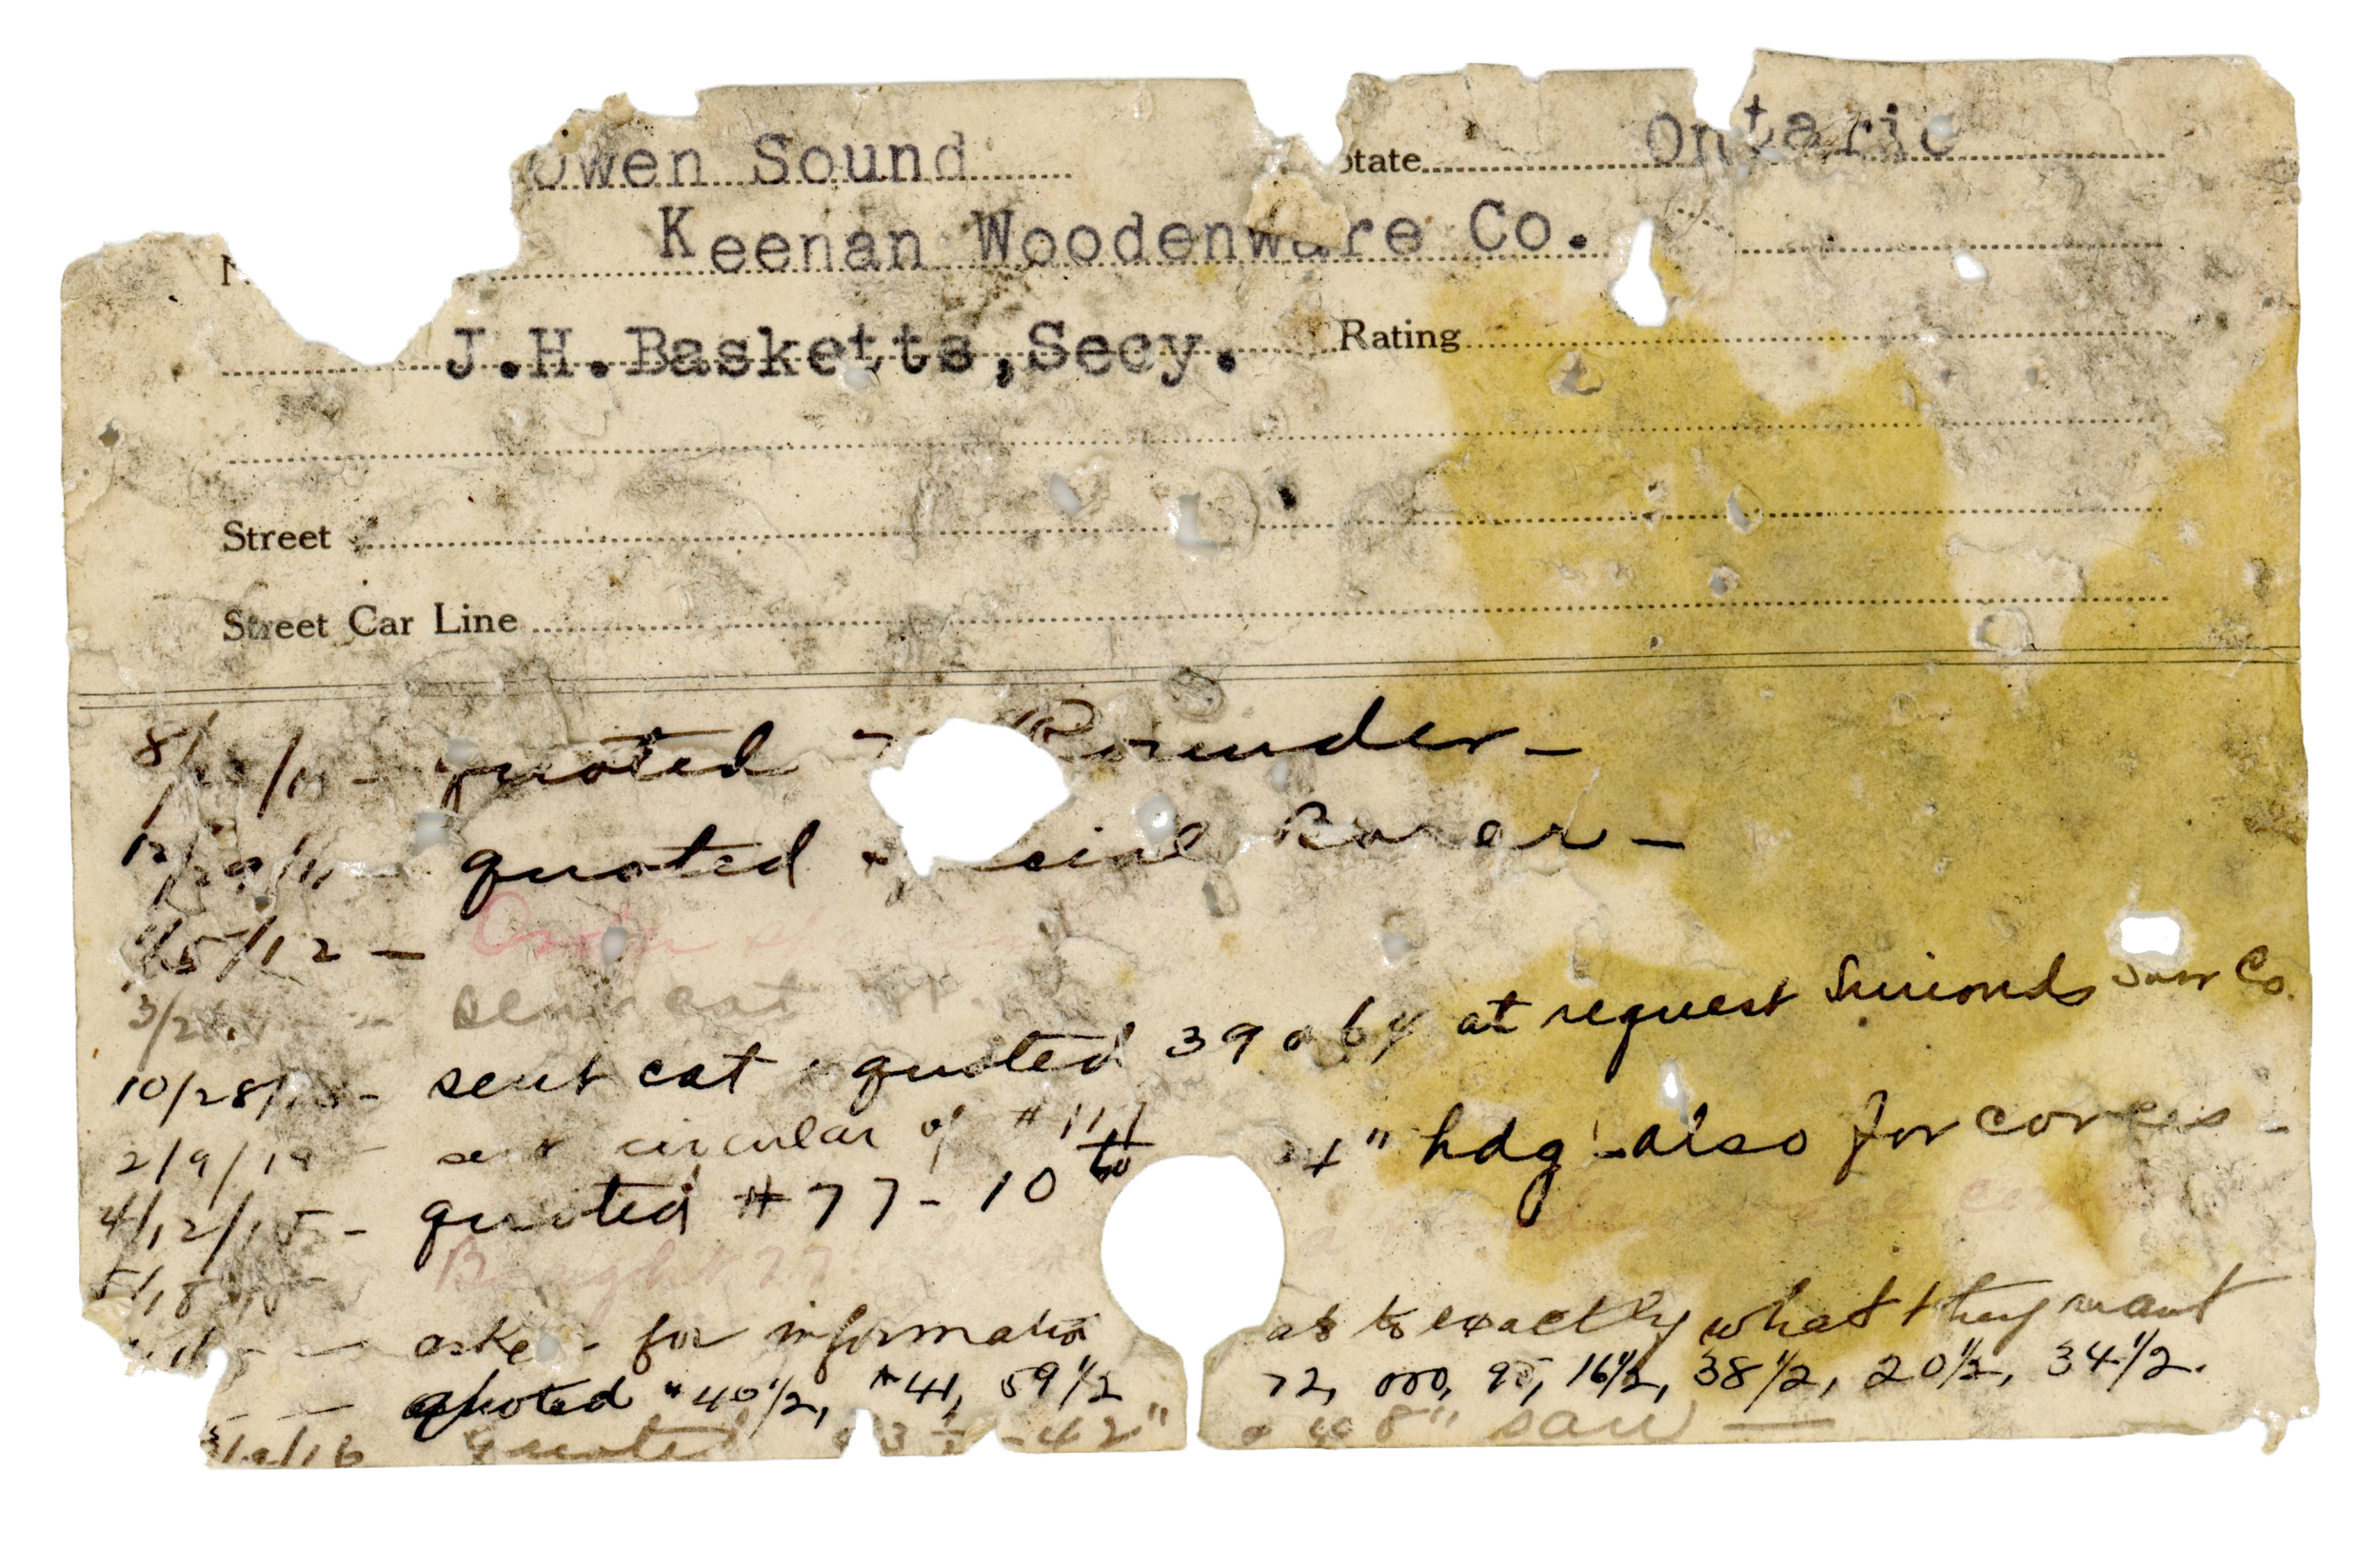 Owen Sound State Ontario
Keenan Woodenware Co.
J.H.Basketts,Secy. Rating
Street
Street Car Line
quoted Rounder -
12/29/11 - quoted special Borer -
1/5/12 -
3/2 sent cat
10/28/13 - sent cat & quoted 39 & 64 at request Simonds Saw Co.
2/9/14 - sent circular of #111
4/12/15 - quoted #77 - 10 to 24" hdg - also for covers -
5/15/15 Bought 77
asked for information as to exactly what they want
quoted #40 1/2, #41, 59 1/2 72, 95, 16 1/2, 38 1/2, 20 1/2, 34 1/2.
/16 quoted - 42" 8" saw -